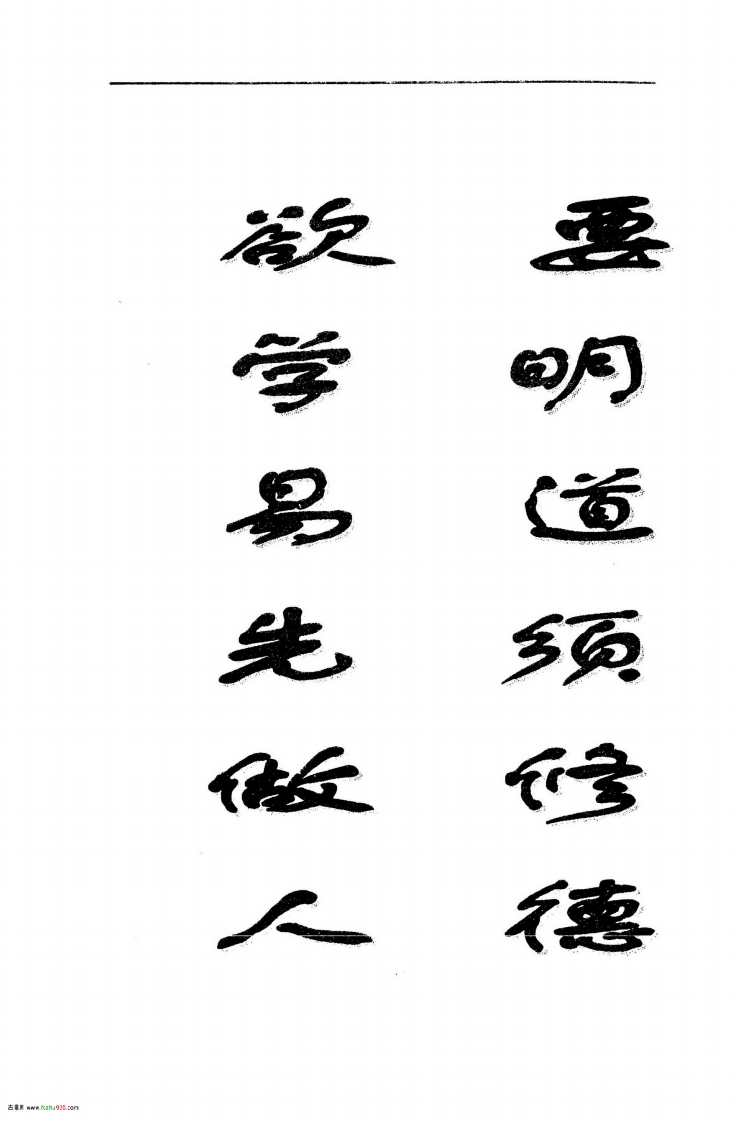 要明道须修德
欲学易先做人
古籍库 www.fczhu920.com